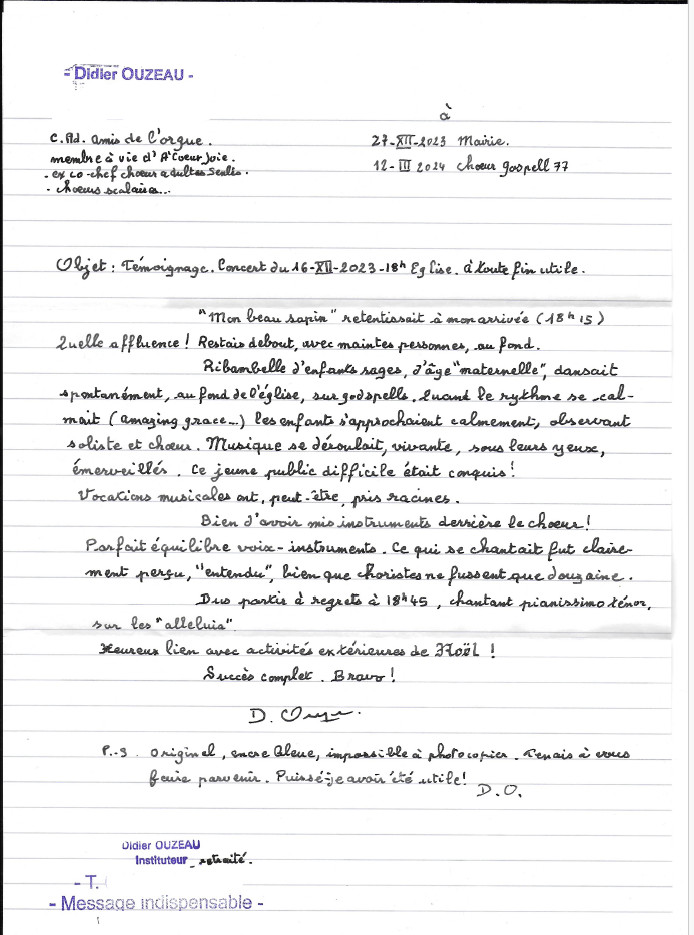 - Didier OUZEAU -
à
C. Ad. amis de l'orgue.
membre à vie d'A Coeur Joie.
- ex co-chef choeur adultes Senlis.
- choeurs scolaires...
27-XII-2023 Mairie.
12-III 2024 choeur gospell 77
Objet : Témoignage. Concert du 16-XII-2023-18h Eglise. à toute fin utile.
"Mon beau sapin" retentissait à mon arrivée (18h15)
Quelle affluence ! Restais debout, avec maintes personnes, au fond.
Ribambelle d'enfants sages, d'âge "maternelle", dansait
spontanément, au fond de l'église, sur godspells. Quand le rythme se cal-
mait (amazing grace...) les enfants s'approchaient calmement, observant
soliste et choeur. Musique se déroulait, vivante, sous leurs yeux,
émerveillés. Ce jeune public difficile était conquis !
Vocations musicales ont, peut-être, pris racines.
Bien d'avoir mis instruments derrière le choeur !
Parfait équilibre voix-instruments. Ce qui se chantait fut claire-
ment perçu, "entendu", bien que choristes ne fussent que douzaine.
Dus partir à regrets à 18h45, chantant pianissimo ténor,
sur les "alleluia".
Heureux lien avec activités extérieures de Noël !
Succès complet. Bravo !
D. Ouzeau.
P.-S. Originel, encre bleue, impossible à photocopier. Tenais à vous
faire parvenir. Puissé-je avoir été utile !
D.O.
Didier OUZEAU
Instituteur retraité.
- T.
- Message indispensable -